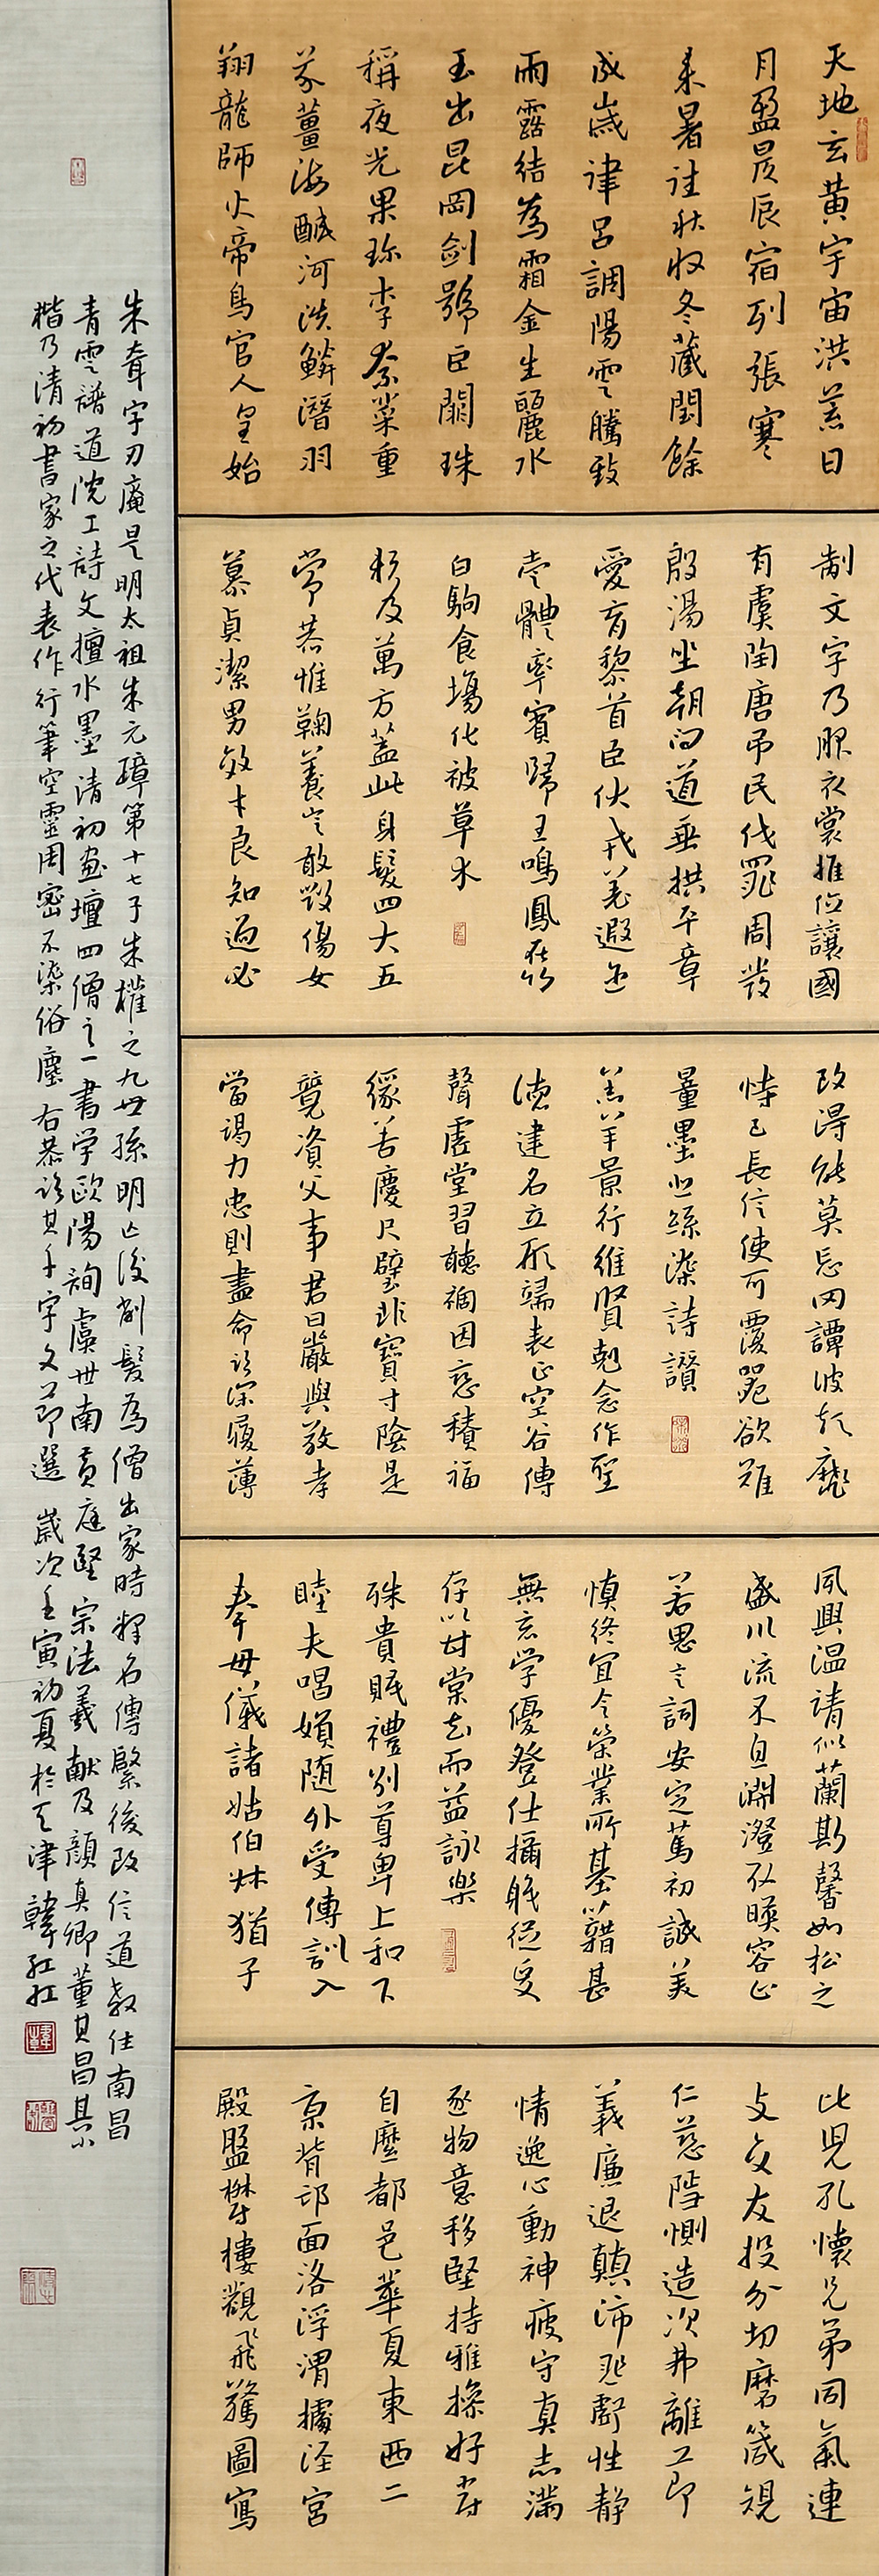 天地玄黃宇宙洪荒日
月盈昃辰宿列張寒
來暑往秋收冬藏閏餘
成歲律呂調陽雲騰致
雨露結為霜金生麗水
玉出昆岡劍號巨闕珠
稱夜光果珍李柰菜重
芥薑海鹹河淡鱗潛羽
翔龍師火帝鳥官人皇始
制文字乃服衣裳推位讓國
有虞陶唐弔民伐罪周發
殷湯坐朝問道垂拱平章
愛育黎首臣伏戎羌遐邇
壹體率賓歸王鳴鳳在竹
白駒食場化被草木
賴及萬方蓋此身髮四大五
常恭惟鞠養豈敢毀傷女
慕貞潔男效才良知過必
改得能莫忘罔談彼短靡
恃己長信使可覆器欲難
量墨悲絲染詩讚
羔羊景行維賢剋念作聖
德建名立形端表正空谷傳
聲虛堂習聽禍因惡積福
緣善慶尺璧非寶寸陰是
競資父事君曰嚴與敬孝
當竭力忠則盡命臨深履薄
夙興溫凊似蘭斯馨如松之
盛川流不息淵澄取暎容止
若思言詞安定篤初誠美
慎終宜令榮業所基藉甚
無竟学優登仕攝職從政
存以甘棠去而益詠樂
殊貴賤禮別尊卑上和下
睦夫唱婦随外受傅訓入
奉母儀諸姑伯叔猶子
比兒孔懷兄弟同氣連
枝交友投分切磨箴規
仁慈隱惻造次弗離節
義廉退顛沛匪虧性静
情逸心動神疲守真志滿
逐物意移堅持雅操好爵
自縻都邑華夏東西二
京背邙面洛浮渭據涇宮
殿盤欝樓觀飛驚圖寫
朱耷字刃庵是明太祖朱元璋第十七子朱權之九世孫明亡後削髮為僧出家時釋名傳綮後改信道教住南昌
青雲譜道院工詩文擅水墨清初画壇四僧之一書学歐陽詢虞世南黃庭堅宗法羲献及顏真卿董其昌其小
楷乃清初書家之代表作行筆空靈周密不染俗塵右恭临其千字文節選歲次壬寅初夏於天津韓紅紅